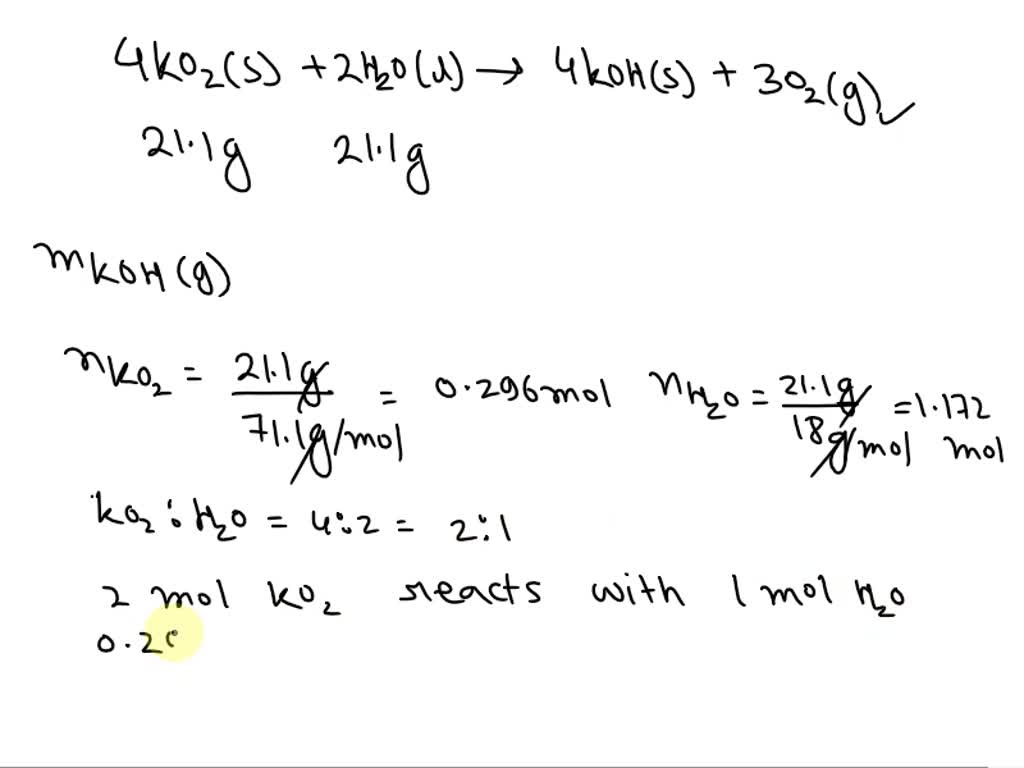 4KO₂(s) + 2H₂O(l) → 4KOH(s) + 3O₂(g) ✓
21.1g 21.1g
mKOH(g)
nKO₂ = 21.1g / 71.1g/mol = 0.296mol nH₂O = 21.1g / 18g/mol = 1.172 mol
KO₂ : H₂O = 4:2 = 2:1
2 mol KO₂ reacts with 1 mol H₂O
0.2